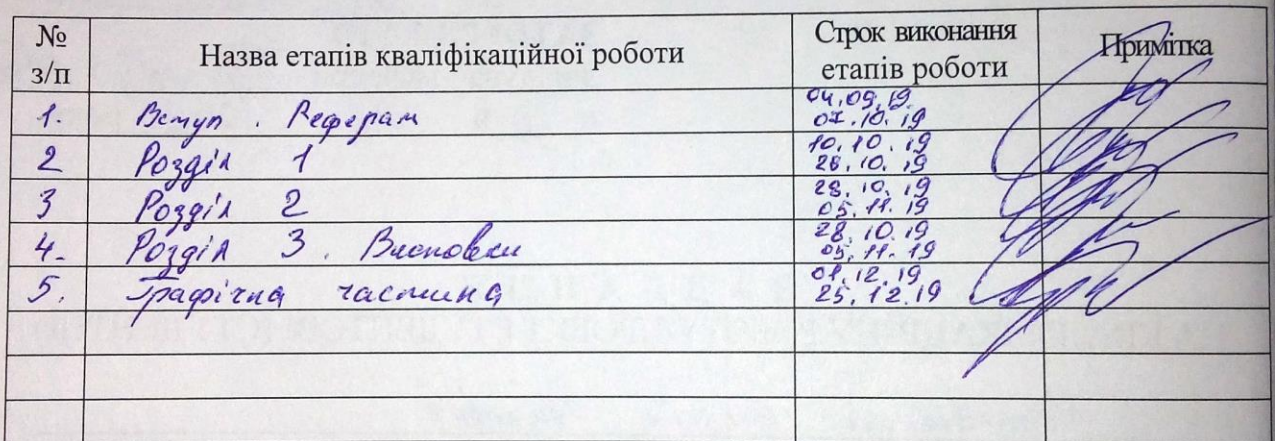 № з/п Назва етапів кваліфікаційної роботи Строк виконання етапів роботи Примітка
1. Вступ. Реферат 04.09.19. 07.10.19
2 Розділ 1 10.10.19 28.10.19
3 Розділ 2 28.10.19 05.11.19
4. Розділ 3. Висновки 28.10.19 05.11.19
5. Графічна частина 01.12.19 25.12.19